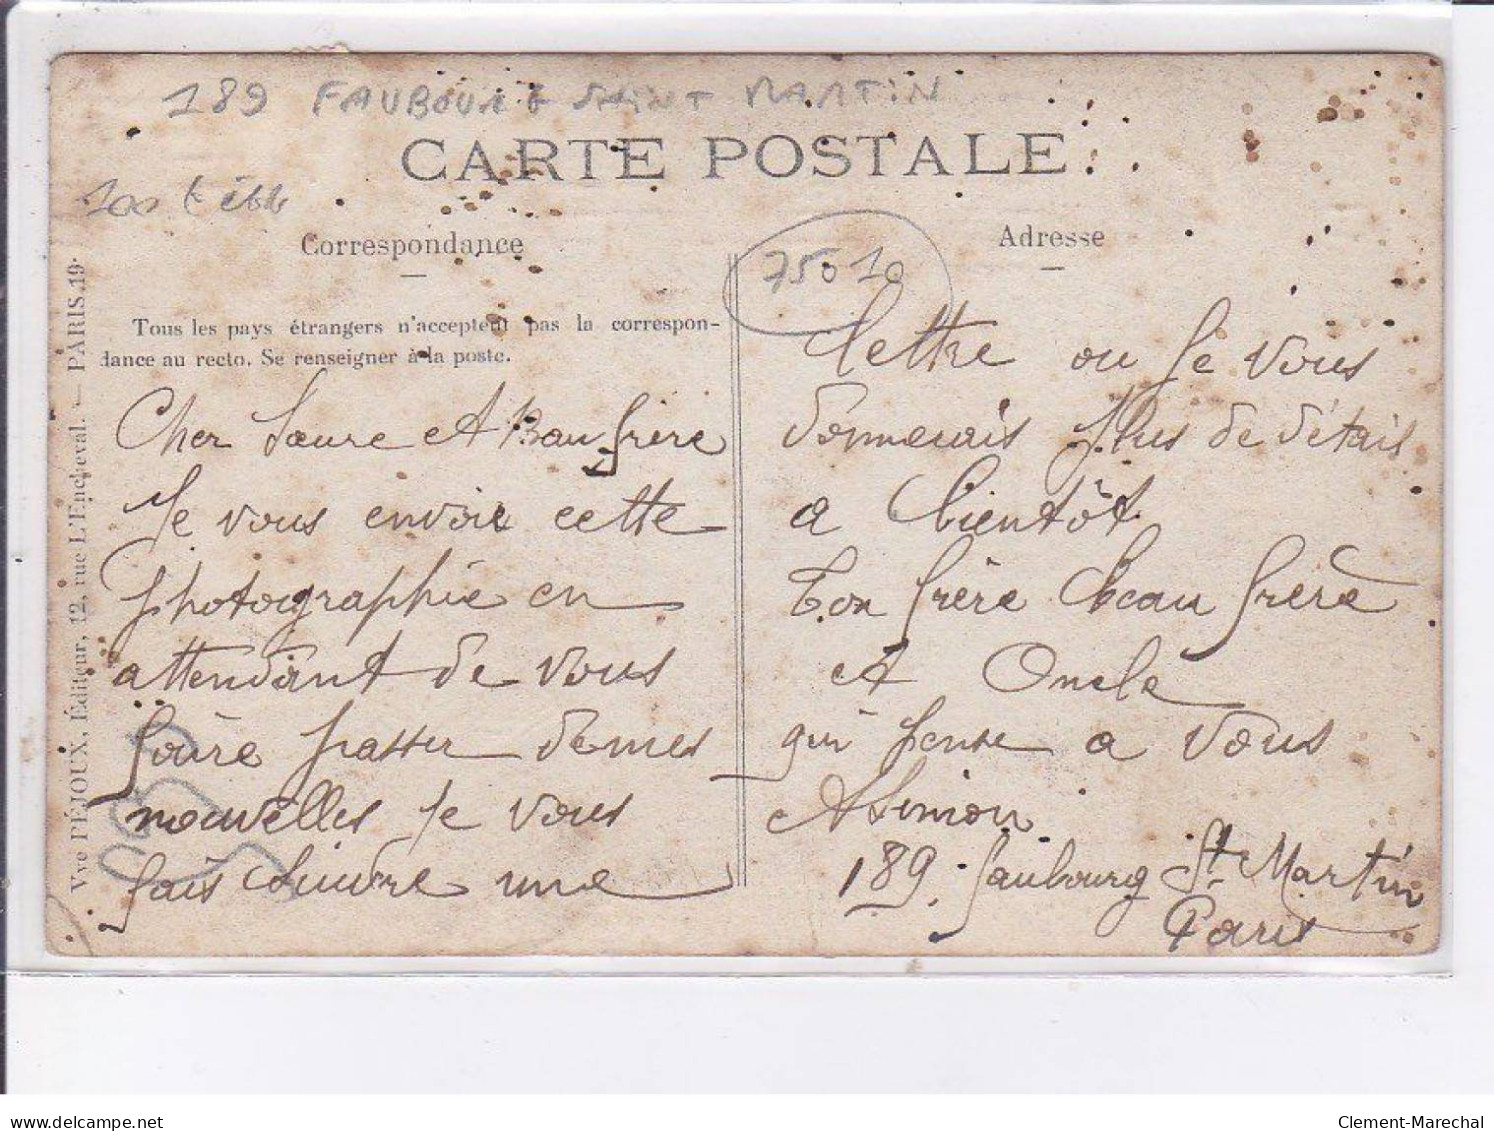 189 FAUBOURG SAINT MARTIN
CARTE POSTALE
Correspondance
Tous les pays étrangers n'acceptent pas la correspon-
dance au recto. Se renseigner à la poste.
Cher Sœure et Beaufrère
Je vous envoie cette
photographie en
attendant de vous
faire passer de mes
nouvelles Je vous
fais suivre une
Vve PÉJOUX, Éditeur, 12, rue L'Encheval. — PARIS.19·
75010
Adresse
lettre ou Je vous
donnerais plus de détais
a bientôt
Ton frère beau frère
et Oncle
qui pense a vous
A Simon
189 faubourg St Martin
Paris
delcampe.net
Clement-Marechal